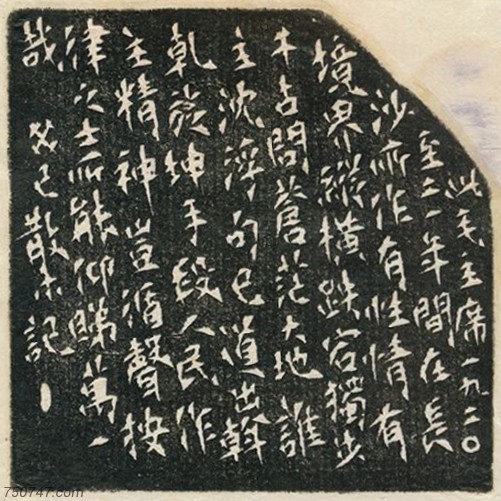 此毛主席一九二〇
至二一年間在長
沙所作有性情有
境界縱橫跌宕獨步
千古問蒼茫大地誰
主沈浮句已道出斡
乾旋坤手段人民作
主精神豈循聲按
律之士所能仰睇萬一
哉 癸巳散木記
750747.com